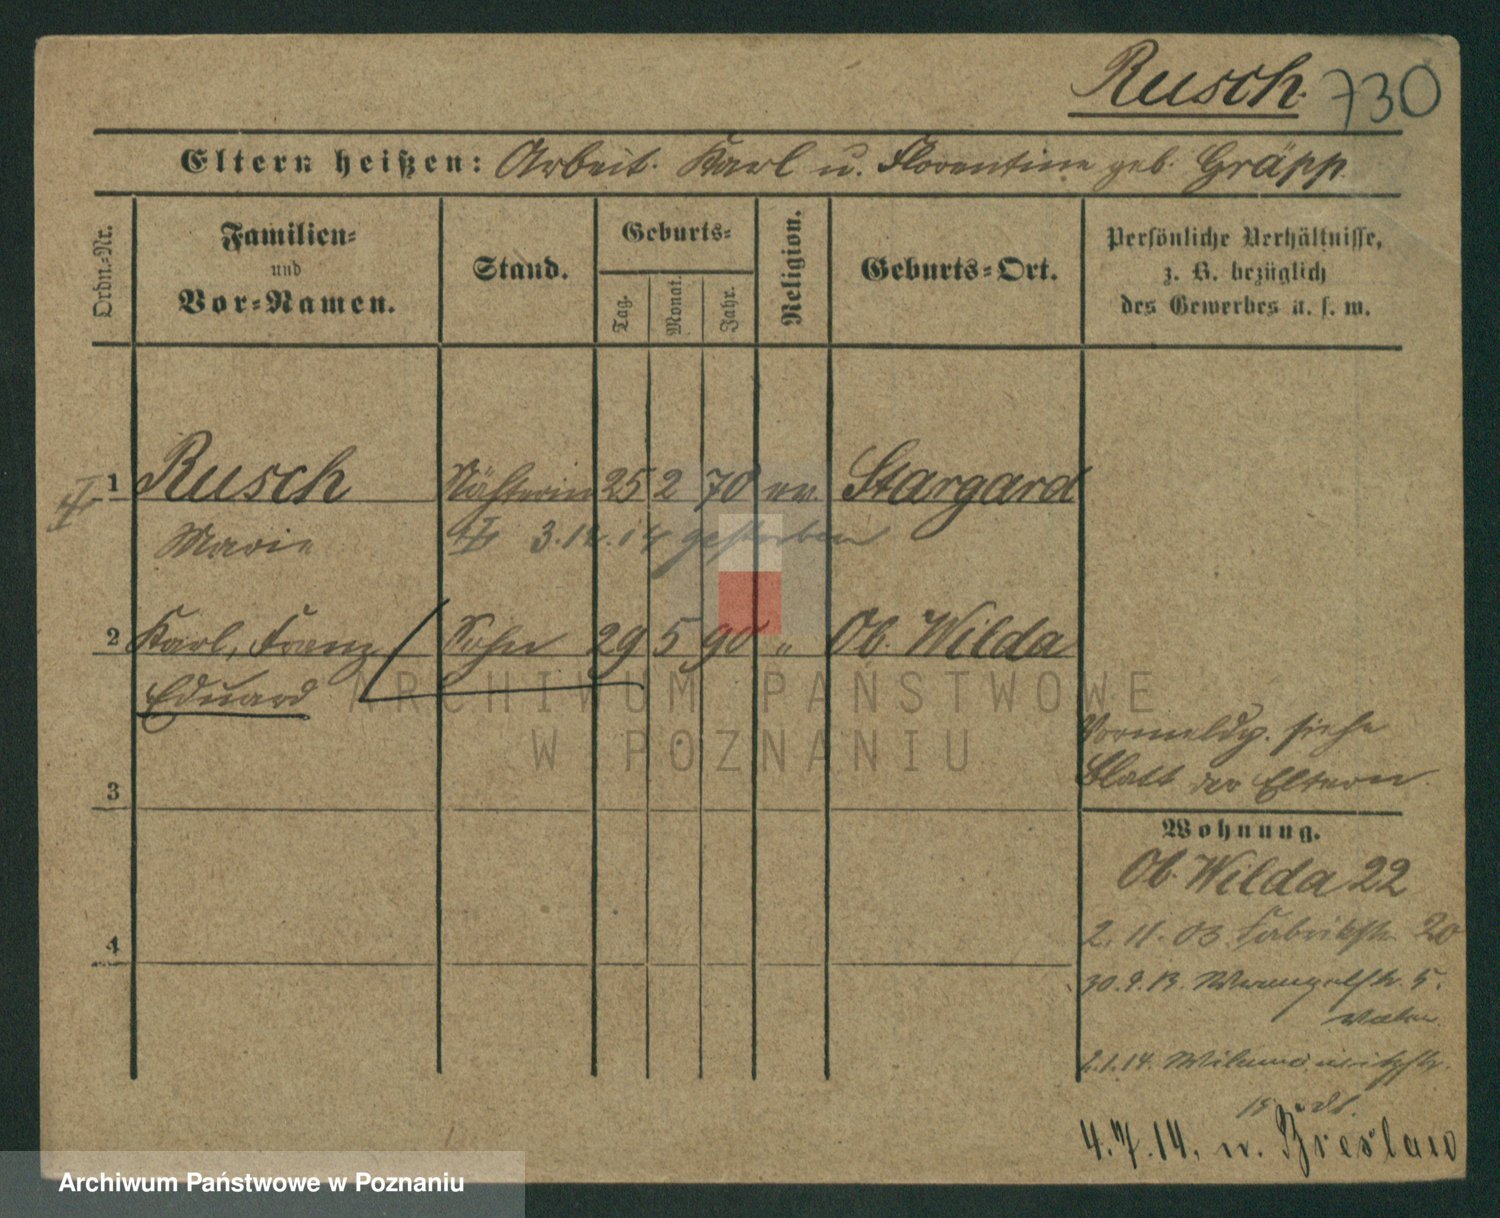 Rusch. 730
Eltern heißen: Arbeit. Karl u. Florentine geb. Gräpp.
Ordn.-Nr.
Familien-
und
Vor-Namen.
Stand.
Geburts-
Tag.
Monat.
Jahr.
Religion.
Geburts-Ort.
Persönliche Verhältnisse,
z. B. bezüglich
des Gewerbes u. s. w.
1 Rusch Nähterin 25 2 70 ev. Stargard
Marie 3.12.14 gestorben
2 Karl, Franz Sohn 29 5 90 " Ob. Wilda
Eduard
ARCHIWUM PAŃSTWOWE
W POZNANIU
Vormeldg. siehe
Blatt der Eltern.
3
Wohnung.
Ob. Wilda 22
2.11.03 Fabrikstr. 20
4
30.9.13. Wrangelstr. 5.
2.1.14.
4.7.14. n. Breslau
Archiwum Państwowe w Poznaniu